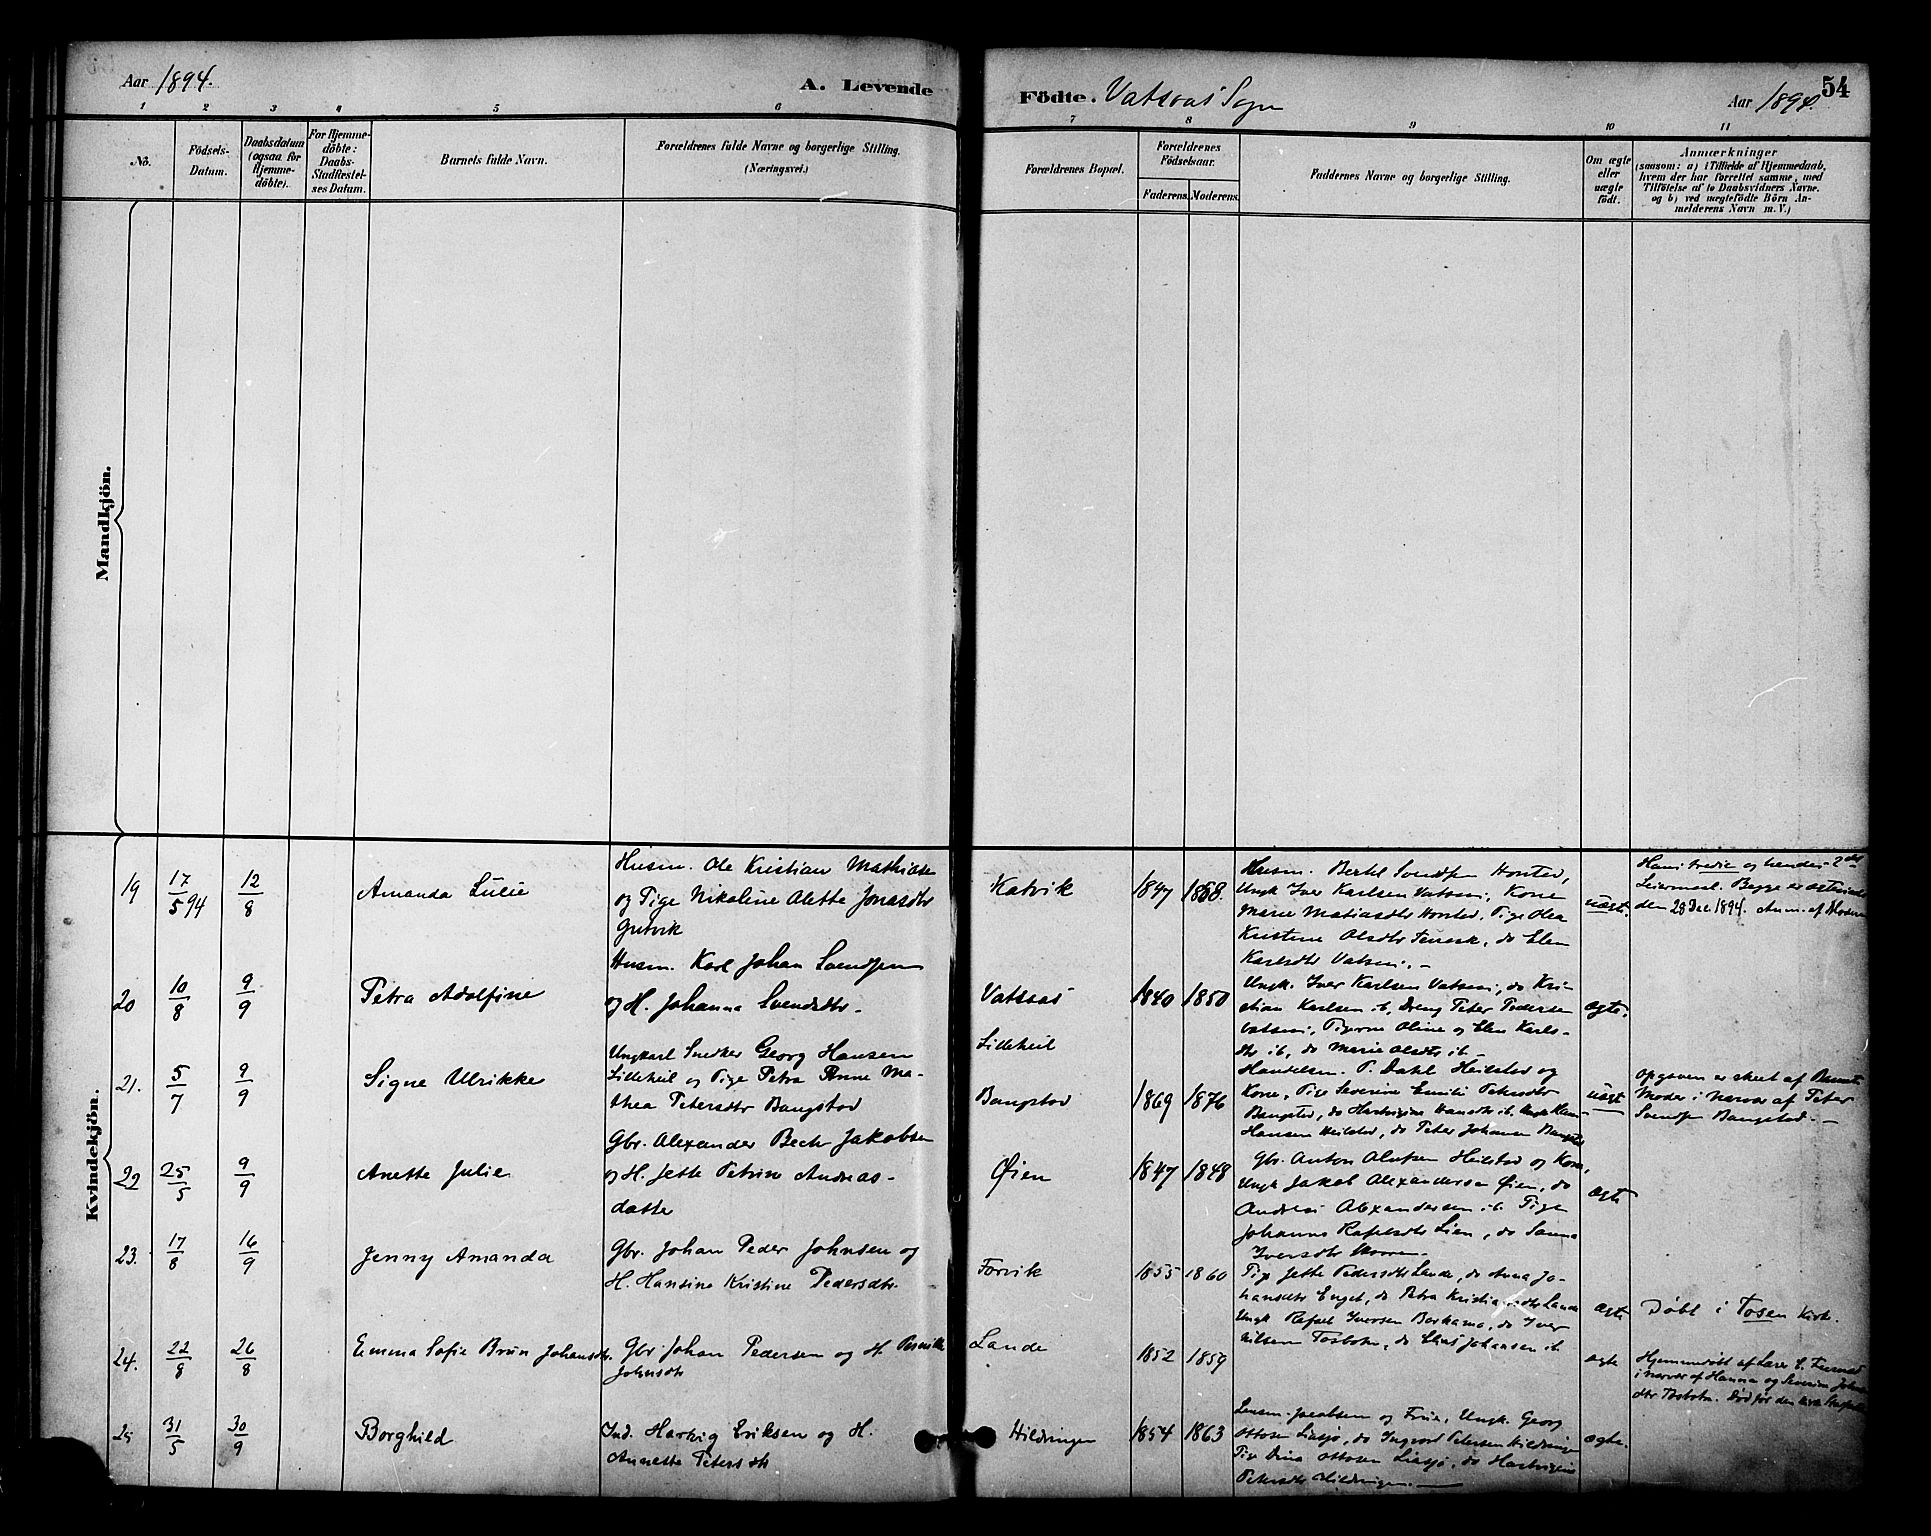 Aar 1894.
A. Levende
Födte. Vatsaas Sogn
Aar 1894.
54
1 2 3 4 5 6 7 8 9 10 11
No.
Födsels-
Datum.
Daabsdatum
(ogsaa for
Hjemme-
döbte).
For Hjemme-
döbte:
Daabs-
Stadfæstel-
ses Datum.
Barnets fulde Navn.
Forældrenes fulde Navne og borgerlige Stilling.
(Næringsvei.)
Forældrenes Bopæl.
Forældrenes
Födselsaar.
Faderens. Moderens.
Faddernes Navne og borgerlige Stilling.
Om ægte
eller
uægte
födt.
Anmærkninger
(saasom: a) i Tilfælde af Hjemmedaab,
hvem der har forrettet samme, med
Tilföielse af to Daabsvidners Navne.
og b) ved uægtefödte Börn An-
melderens Navn m. V.)
Mandkjön.
Kvindekjön.
19
17/5 94
12/8
Amanda Lulie
Husm. Ole Kristian Mathiasen
og Pige Nikoline Alette Jonasdtr
Gutvik
Katvik
1847 1868.
Husm. Bertel Svendsen Horsted,
Ungk Iver Karlsen Vatsaas, Kone
Marie Matiasdtr Horsted, Pige Olea
Kristine Olsdtr, do Elen
Karlsdtr Vatsaas.
uægt.
Hans tredie og hendes 2det
Leiermaal. Begge er
den 28 Dec. 1894. Anm. af Moderen
20
10/8
9/9
Petra Adolfine
Husm. Karl Johan Svendsen
og H. Johanna Svendsdtr.
Vatsaas
1840 1850
Ungk. Iver Karlsen Vatsaas, do Kri-
stian Karlsen ib, Dreng Peter Pedersen
Vatsaas, Pigerne Oline og Elen Karls-
dtr ib, do Marie Olsdtr ib
ægte.
21.
5/7
9/9
Signe Ulrikke
Ungkarl Snedker Georg Hansen
Lilleheil og Pige Petra Anne Ma-
thea Petersdtr Bangstad
Lilleheil
Bangstad
1869 1876
Handelsm. P. Dahl Heilstad og
Kone, Pige Severine Emilie Petersdtr
Bangstad, do Hartvigine Hansdtr ib Ungk
Hansen Heilstad, do Peter Johansen Bangstad
uægt
Opgaven er skeet af Barnets
Moder i Nærvær af Peter
Svendsen Bangstad.
22
25/5
9/9
Anette Julie
Gbr. Alexander Bech Jakobsen
og H. Jette Petrine Andreas-
datter
Øien
1847 1848
Gbr. Anton Olufsen Heilstad og Kone,
Ungk Jakob Alexandersen Øien, do
Andreas Alexandersen ib. Pige
Johanna Rafelsdtr Lien, do Sanna
Iversdtr
ægte
23.
17/8
16/9
Jenny Amanda
Gbr. Johan Peder Johnsen og
H. Hansine Kristine Pedersdtr.
Forvik
1855 1860
Pige Jette Pedersdtr Lande, do Anna Jo-
hansdtr Enget, do Petra Kristiansdtr Lande
Ungk Rafael Iversen Borkamo, do Iver
Nilsen Tosbotn, do Elias Johansen ib
ægte
Døbt i Tosen Kirke.
24.
22/8
26/8
Emma Sofie Brun Johansdtr.
Gbr Johan Pedersen og H. Pernille
Johnsdtr
Lande
1852 1859
ægte
Hjemmedøbt af Lærer E.
i Nærvær af Hanna og Severine Johns-
dtr Tosbotn. Død før den
25
31/5
30/9
Borghild
Ind. Hartvig Eriksen og H.
Annette Petersdtr
Hildringen
1854 1863
Lensm. Jacobsen og Frue, Ungk. Georg
Ottosen Liasjø, do Ingvard Petersen Hildringen
Pige Dina Ottosen Liasjø, do Hartvigine
Petersdtr Hildringen.
ægte.